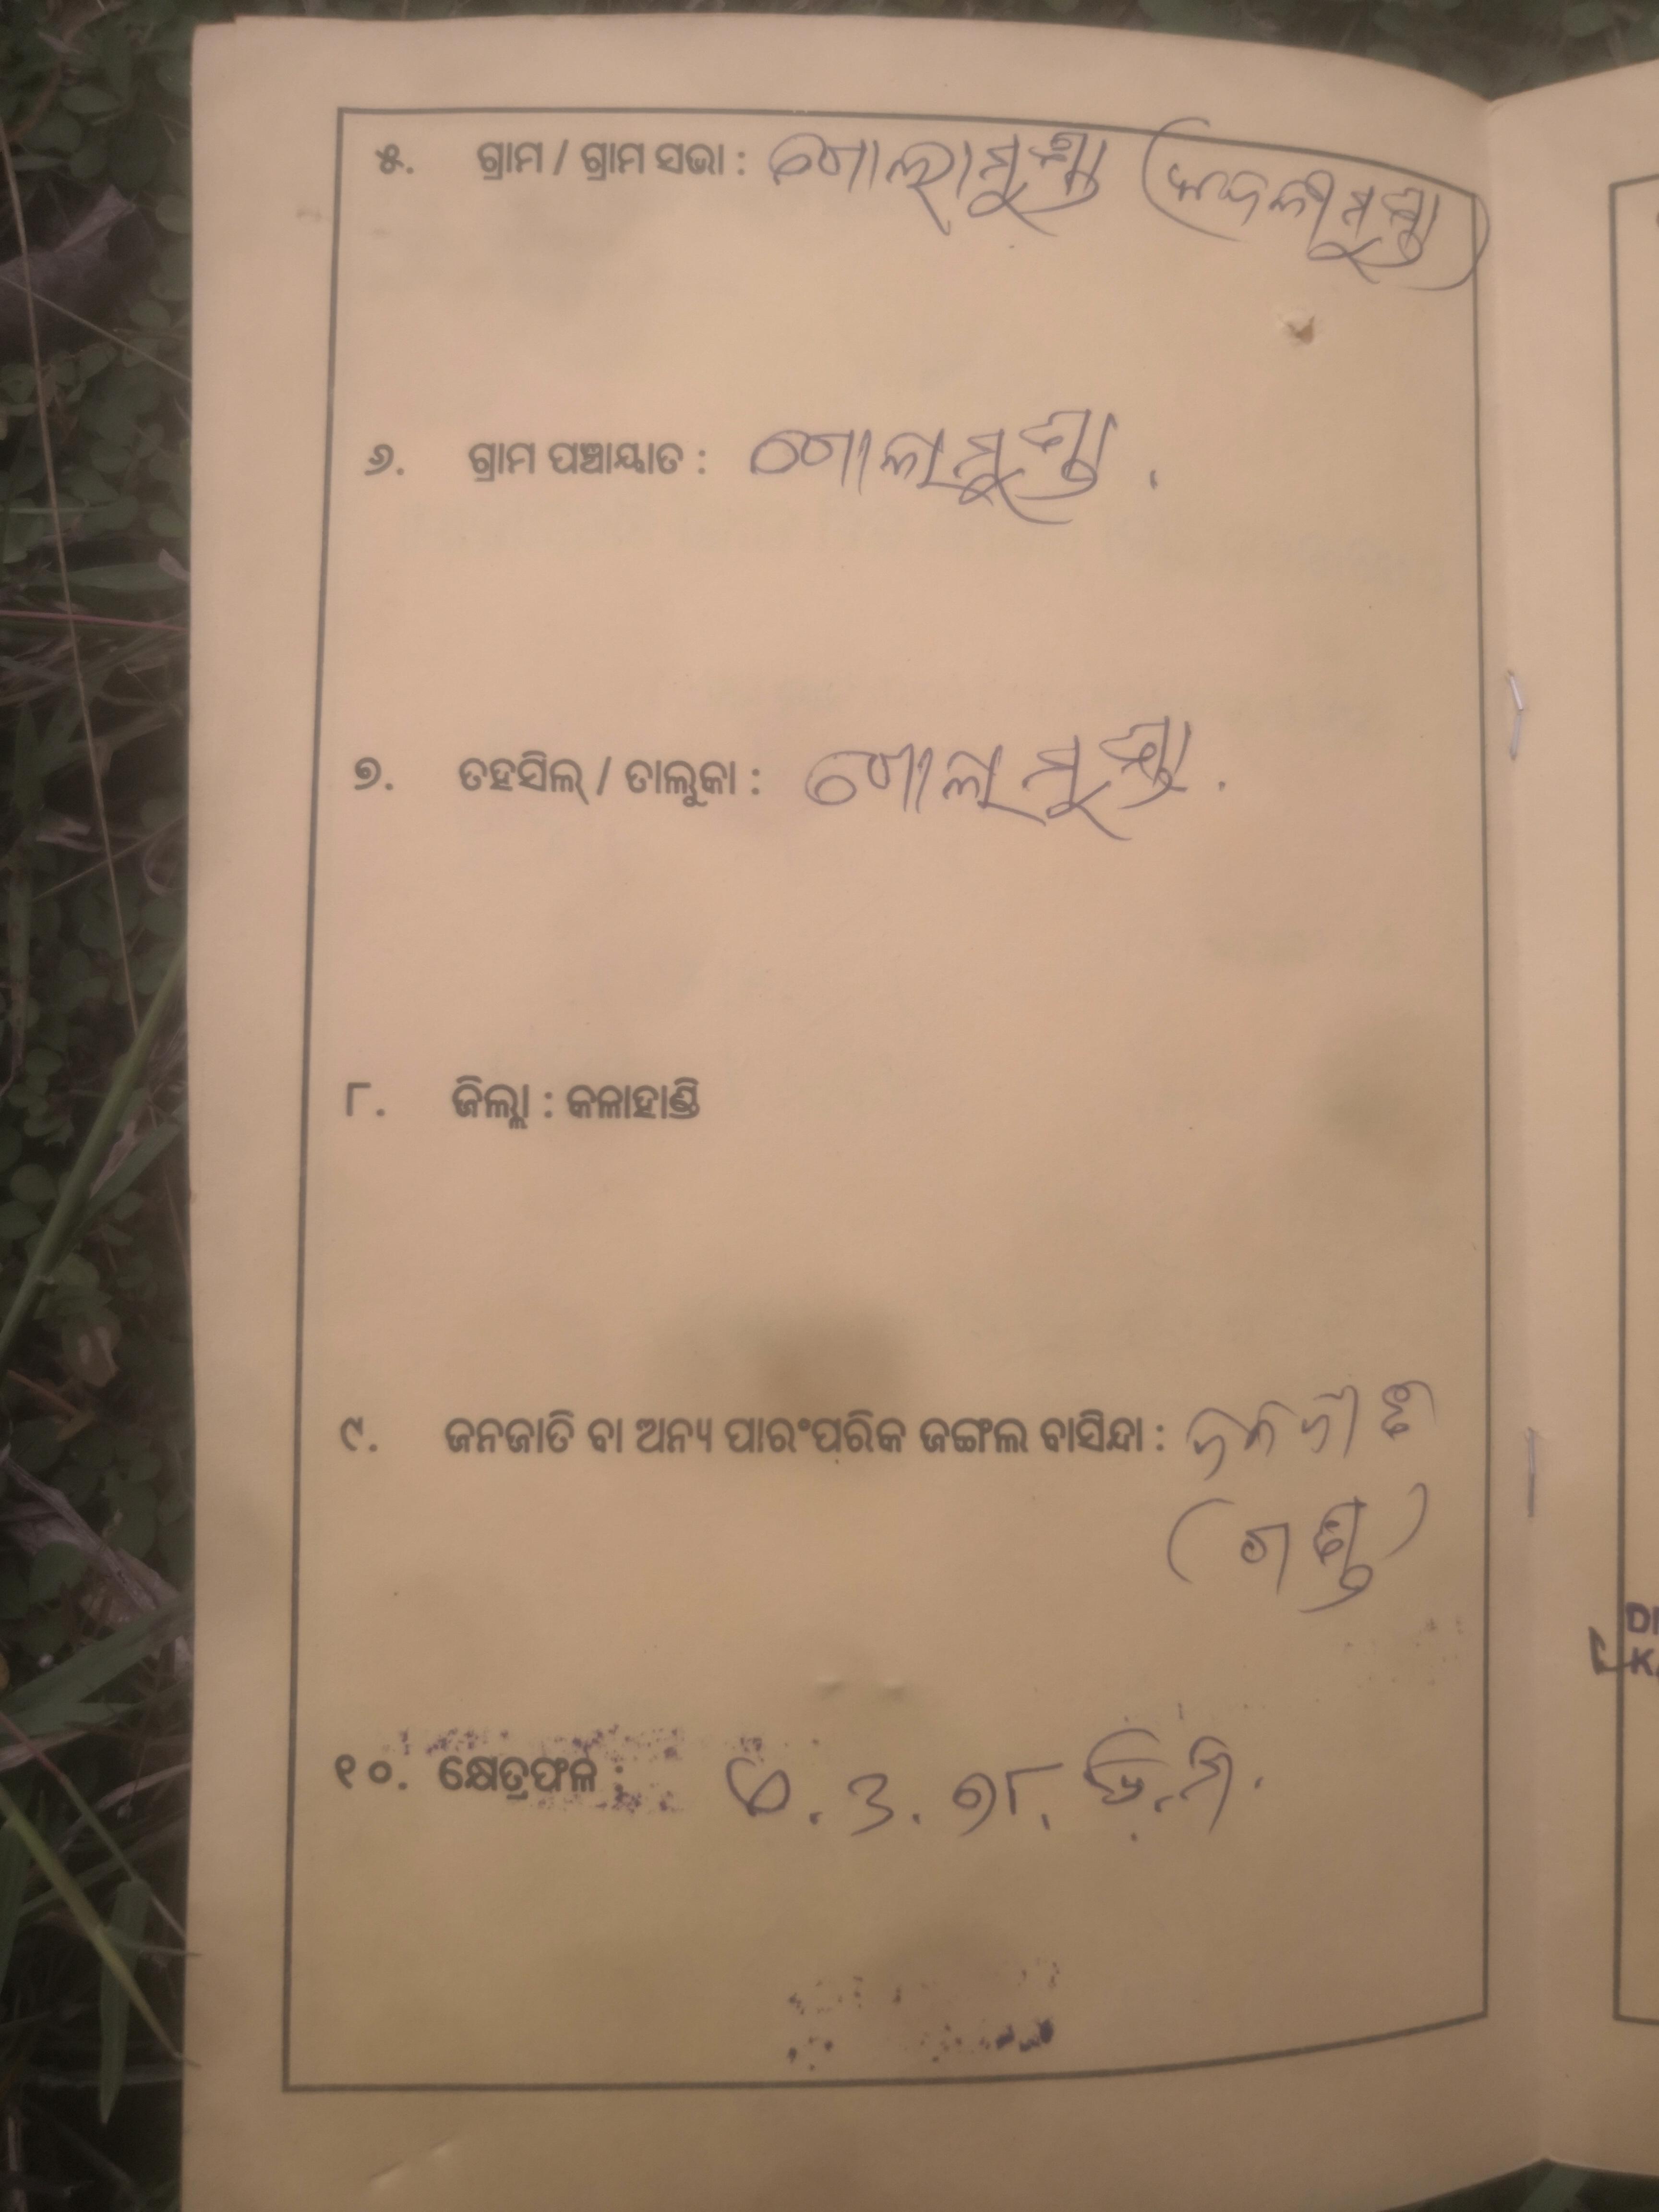 ୫. ଗ୍ରାମ / ଗ୍ରାମ ସଭା : ଗୋଲାମୁଣ୍ଡା
୬. ଗ୍ରାମ ପଞ୍ଚାୟାତ : ଗୋଲାମୁଣ୍ଡା .
୭. ତହସିଲ୍ / ତାଲୁକା : ଗୋଲାମୁଣ୍ଡା .
୮. ଜିଲ୍ଲା : କଳାହାଣ୍ଡି
୯. ଜନଜାତି ବା ଅନ୍ୟ ପାରଂପରିକ ଜଙ୍ଗଲ ବାସିନ୍ଦା : ଜନଜାତି
(ଗଣ୍ଡ)
୧୦. କ୍ଷେତ୍ରଫଳ : ୦.୩.୭୮. ଡି.ମି.